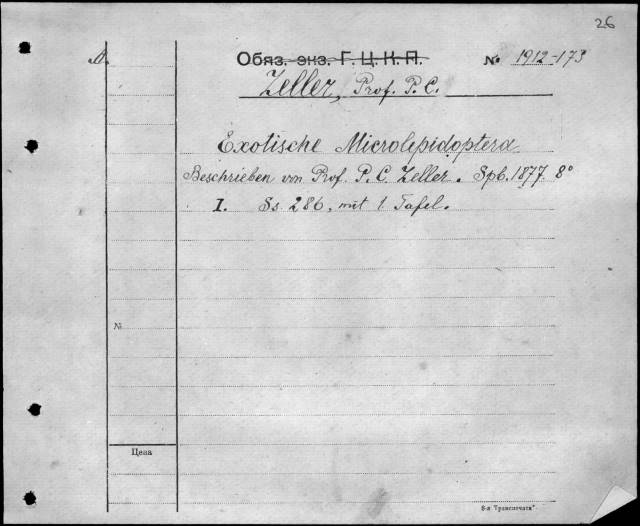 26
Обяз. экз. Г. Ц. К. П. № 1912-173
Zeller, Prof. P. C.
Exotische Microlepidoptera
Beschrieben von Prof. P. C. Zeller. Spb. 1877. 8°
I. Ss. 286, mit 1 Tafel.
№
Цена
8-я „Транспечать"